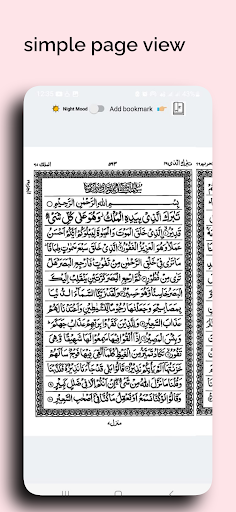 simple page view
Night Mood Add bookmark
تبٰرك الذى ٢٩ ٥٦٣ الملك ٦٧
بِسْمِ اللهِ الرَّحْمٰنِ الرَّحِيْمِ
تَبٰرَكَ الَّذِيْ بِيَدِهِ الْمُلْكُ وَهُوَ عَلٰى كُلِّ شَيْءٍ
قَدِيْرُ الَّذِيْ خَلَقَ الْمَوْتَ وَالْحَيٰوةَ لِيَبْلُوَكُمْ اَيُّكُمْ اَحْسَنُ
عَمَلًا وَهُوَ الْعَزِيْزُ الْغَفُوْرُ الَّذِيْ خَلَقَ سَبْعَ سَمٰوٰتٍ طِبَاقًا
مَا تَرٰى فِيْ خَلْقِ الرَّحْمٰنِ مِنْ تَفٰوُتٍ فَارْجِعِ الْبَصَرَ هَلْ
تَرٰى مِنْ فُطُوْرٍ ثُمَّ ارْجِعِ الْبَصَرَ كَرَّتَيْنِ يَنْقَلِبْ اِلَيْكَ
الْبَصَرُ خَاسِئًا وَهُوَ حَسِيْرٌ وَلَقَدْ زَيَّنَّا السَّمَآءَ الدُّنْيَا
بِمَصَابِيْحَ وَجَعَلْنٰهَا رُجُوْمًا لِّلشَّيٰطِيْنِ وَاَعْتَدْنَا لَهُمْ
عَذَابَ السَّعِيْرِ وَلِلَّذِيْنَ كَفَرُوْا بِرَبِّهِمْ عَذَابُ جَهَنَّمَ وَ
بِئْسَ الْمَصِيْرُ اِذَآ اُلْقُوْا فِيْهَا سَمِعُوْا لَهَا شَهِيْقًا وَّهِيَ
تَفُوْرُ تَكَادُ تَمَيَّزُ مِنَ الْغَيْظِ كُلَّمَآ اُلْقِيَ فِيْهَا فَوْجٌ سَاَلَهُمْ
خَزَنَتُهَآ اَلَمْ يَاْتِكُمْ نَذِيْرٌ قَالُوْا بَلٰى قَدْ جَآءَنَا نَذِيْرٌ فَكَذَّبْنَا
وَقُلْنَا مَا نَزَّلَ اللهُ مِنْ شَيْءٍ اِنْ اَنْتُمْ اِلَّا فِيْ ضَلٰلٍ كَبِيْرٍ
وَقَالُوْا لَوْ كُنَّا نَسْمَعُ اَوْ نَعْقِلُ مَا كُنَّا فِيْٓ اَصْحٰبِ السَّعِيْرِ
منزل٧